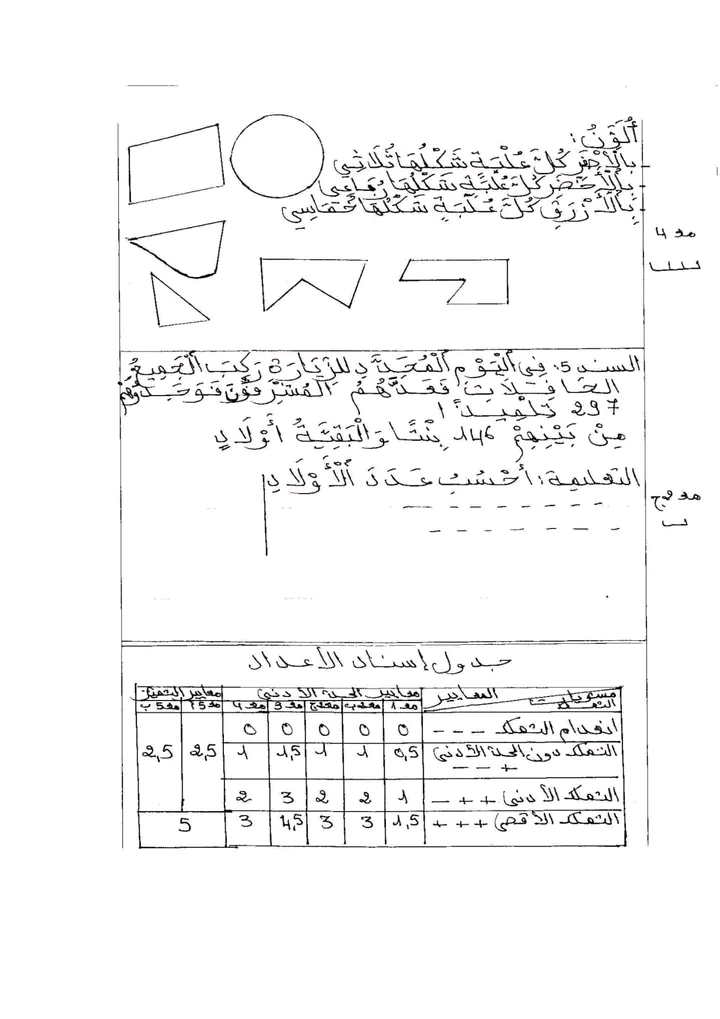 أُلَوِّنُ :
- بِالْأَحْمَرِ كُلَّ عُلْبَةٍ شَكْلُهَا ثُلَاثِي
- بِالْأَخْضَرِ كُلَّ عُلْبَةٍ شَكْلُهَا رُبَاعِي
- بِالْأَزْرَقِ كُلَّ عُلْبَةٍ شَكْلُهَا خُمَاسِي
مع 4
السند 5: فِي الْيَوْمِ الْمُحَدَّدِ لِلزِّيَارَةِ رَكِبَ الْجَمِيعُ
الحَافِلَاتِ فَعَدَّهُمُ الْمُشْرِفُونَ فَوَجَدُوهُمْ
297 تِلْمِيذًا
مِنْ بَيْنِهِمْ 146 بِنْتًا وَالْبَقِيَّةُ أَوْلَادٌ
التعليمة: أَحْسُبُ عَدَدَ الْأَوْلَادِ
مع 2 ج
جدول إسناد الأعداد
مستويات التملك المعايير معايير الحد الأدنى معايير التميز
مع 1 مع 2 ب مع 2 ج مع 3 مع 4 مع 5 أ مع 5 ب
انعدام التملك - - - 0 0 0 0 0
التملك دون الحد الأدنى + - - 0,5 1 1 1,5 1 2,5 2,5
التملك الأدنى + + - 1 2 2 3 2
التملك الأقصى + + + 1,5 3 3 4,5 3 5